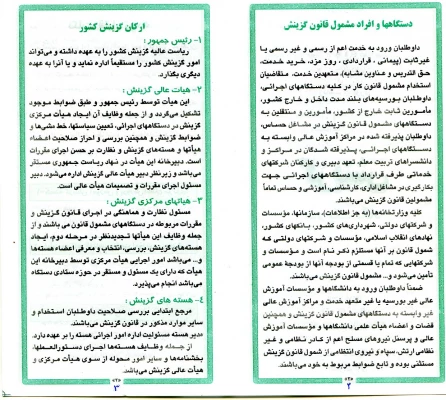 دستگاهها و افراد مشمول قانون گزینش
داوطلبان ورود به خدمت اعم از رسمی و غیر رسمی یا
غیرثابت (پیمانی ، قراردادی ، روز مزد، خرید خدمت،
حق التدریس و عناوین مشابه) متعهدین خدمت، متقاضیان
استخدام مشمول قانون کار در کلیه دستگاههای اجرائی،
داوطلبان بورسیه‌های بلند مدت داخل و خارج کشور،
مأمورین ثابت خارج از کشور، مأمورین و منتقلین به
دستگاههای مشمول قانون گزینش در مشاغل حساس،
داوطلبان پذیرفته شده در مراکز آموزش عالی وابسته به
دستگاههای اجرائی، پذیرفته شدگان در مراکز و
دانشسراهای تربیت معلم، تعهد دبیری و کارکنان شرکتهای
خدماتی طرف قرارداد با دستگاههای اجرائی جهت
بکارگیری در مشاغل اداری، کارشناسی، آموزشی و حساس تماماً
مشمولین قانون گزینش می‌باشند.
کلیه وزارتخانه‌ها (به جز اطلاعات)، سازمانها، مؤسسات
و شرکتهای دولتی، شهرداری‌های کشور، بانکهای کشور،
نهادهای انقلاب اسلامی، مؤسسات و شرکتهای دولتی که
شمول قانون بر آنها مستلزم ذکر نام است و مؤسسات و
شرکتهایی که تمام یا قسمتی از بودجه آنها از بودجه عمومی
تأمین می‌شود و... مشمول قانون گزینش می‌باشند.
ضمناً داوطلبان ورود به دانشگاهها و مؤسسات آموزش
عالی غیر بورسیه یا غیر متعهد خدمت و مراکز آموزش عالی
غیر وابسته به دستگاههای مشمول قانون گزینش و همچنین
قضات و اعضاء هیأت علمی دانشگاهها و مؤسسات آموزش
عالی و پرسنل نیروهای مسلح اعم از کادر نظامی و غیر
نظامی ارتش، سپاه و نیروی انتظامی از شمول قانون گزینش
مستثنی بوده و تابع ضوابط مربوط به خود می‌باشند.
۲
ارکان گزینش کشور
۱- رئیس جمهور :
ریاست عالیه گزینش کشور را به عهده داشته و می‌تواند
امور گزینش کشور را مستقیماً اداره نماید و یا آنرا به عهده
دیگری بگذارد.
۲- هیأت عالی گزینش :
این هیأت توسط رئیس جمهور و طبق ضوابط موجود
تشکیل می‌گردد و از جمله وظایف آن ایجاد هیأت مرکزی
گزینش در دستگاههای اجرائی، تعیین سیاستها، خط مشی‌ها و
ضوابط گزینش و همچنین بررسی و احراز صلاحیت اعضاء
هیأتها و هسته‌های گزینش و نظارت بر حسن اجرای مقررات
است. دبیرخانه این هیأت در نهاد ریاست جمهوری مستقر
می‌باشد و زیر نظر دبیر هیأت عالی گزینش اداره می‌شود. دبیر
مسئول اجرای مقررات و تصمیمات هیأت عالی است.
۳- هیأتهای مرکزی گزینش :
مسئول نظارت و هماهنگی در اجرای قانون گزینش و
مقررات مربوطه در دستگاههای مشمول قانون می باشند و از
جمله وظایف این هیأتها تجدیدنظر در مرحله دوم، ایجاد
هسته‌های گزینش، بررسی، انتخاب و معرفی اعضاء هسته‌ها
و... می‌باشد. امور اجرایی هیأت مرکزی توسط دبیرخانه این
هیأت که دارای یک مسئول و مستقر در حوزه ستادی دستگاه
می‌باشد انجام می‌پذیرد.
۴- هسته های گزینش :
مرجع ابتدایی بررسی صلاحیت داوطلبان استخدام و
سایر موارد مذکور در قانون گزینش می‌باشند.
مدیر هسته مسئولیت اداره امور اجرائی هسته را بر عهده دارد.
از جمله وظایف هسته‌ها اجرای دستورالعملها،
بخشنامه‌ها و سایر امور محوله از سوی هیأت مرکزی و
هیأت عالی گزینش می‌باشد.
۳